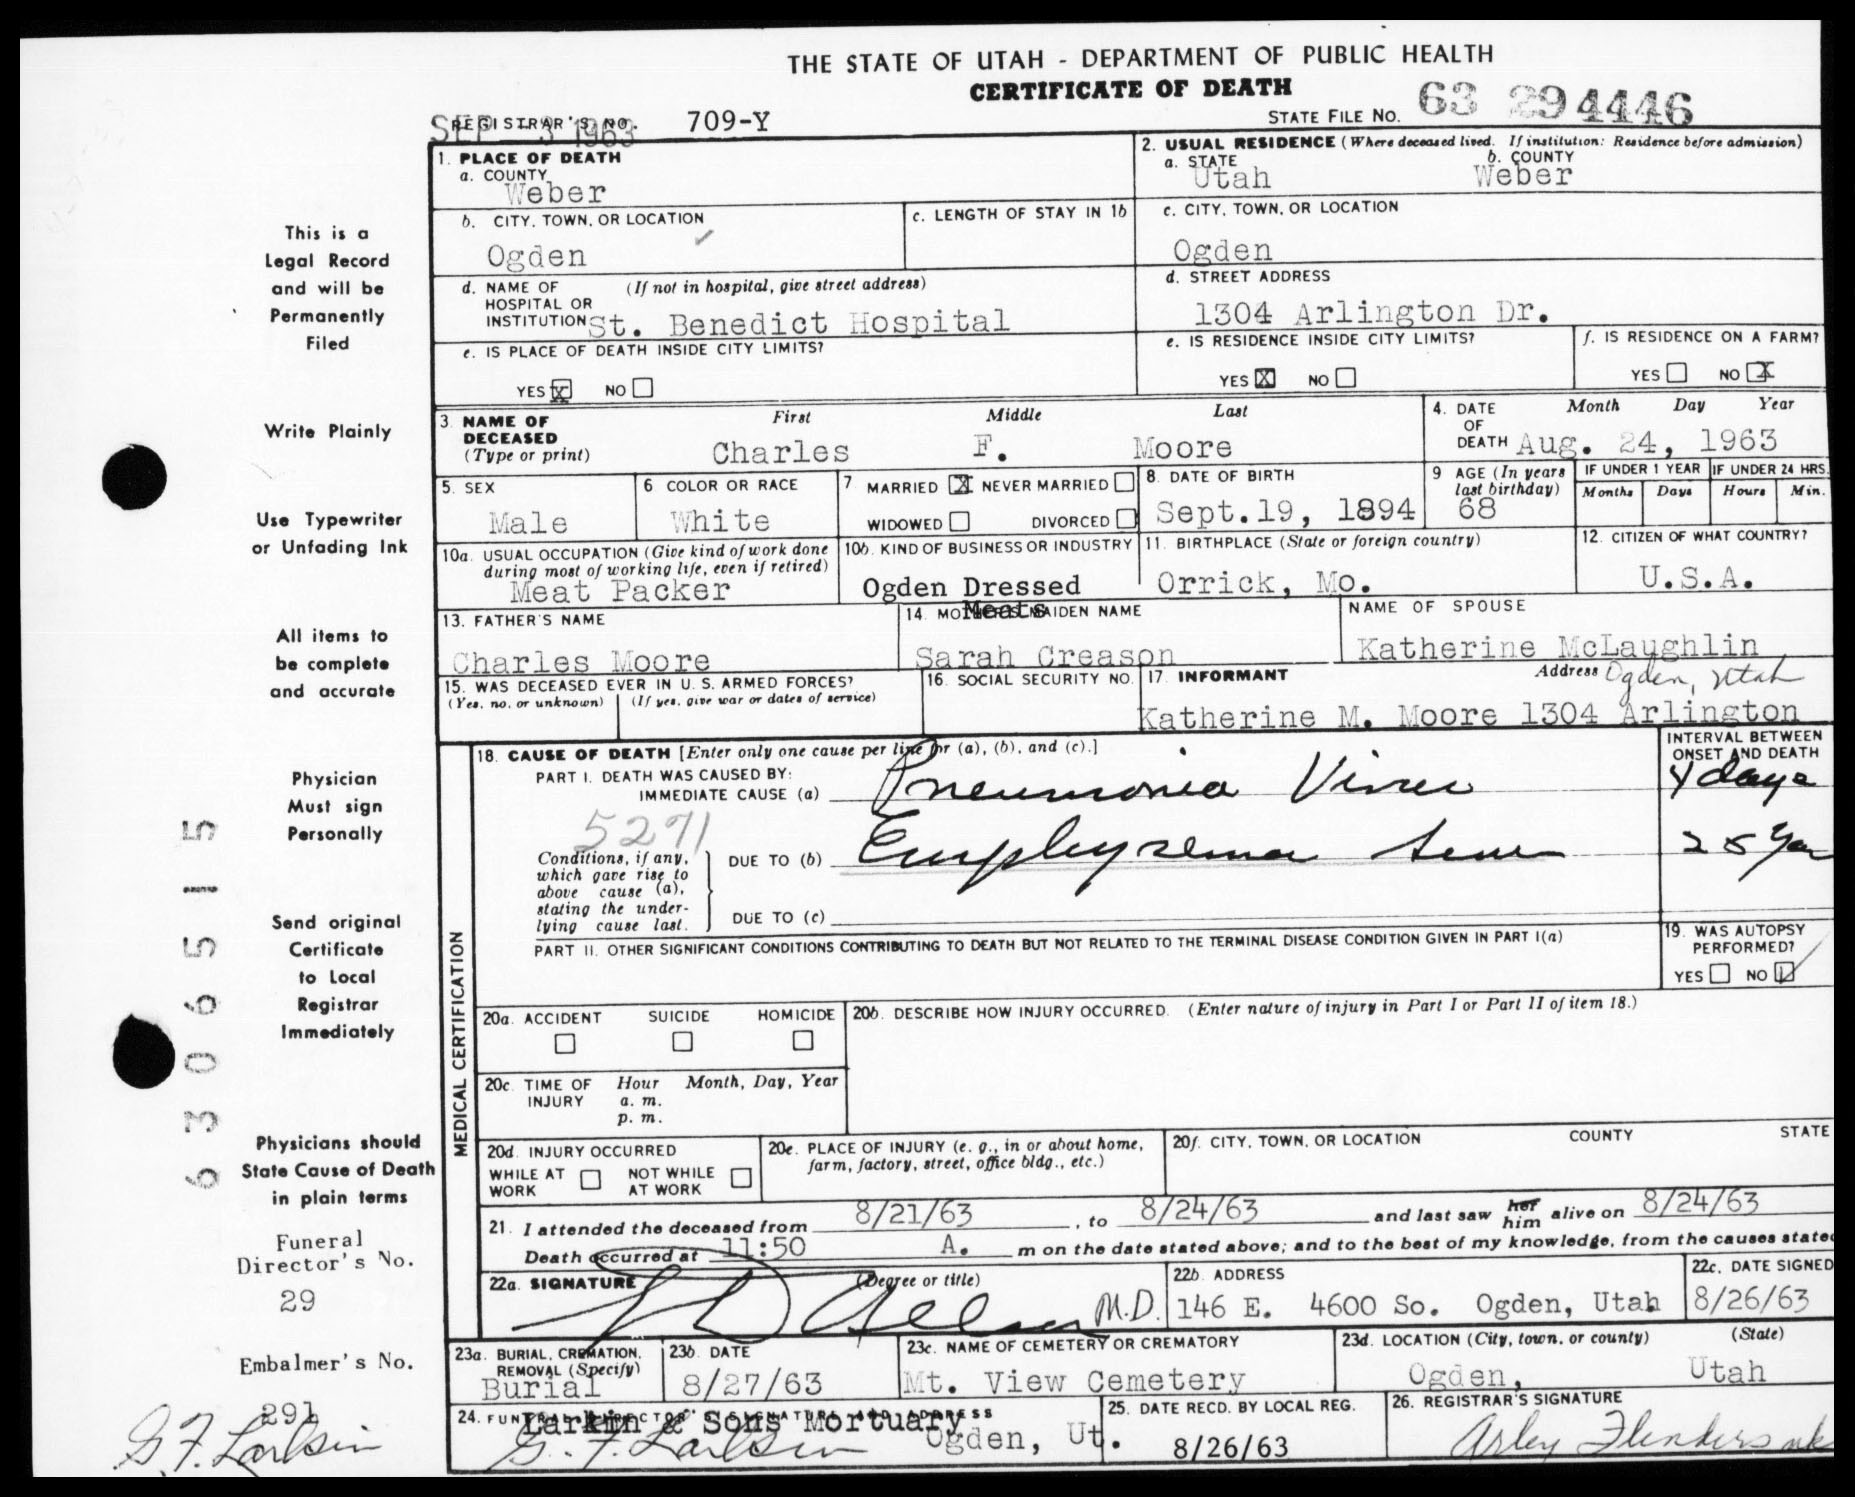 THE STATE OF UTAH - DEPARTMENT OF PUBLIC HEALTH
CERTIFICATE OF DEATH
STATE FILE NO. 63 294446
SEP 3 1963
REGISTRAR'S NO. 709-Y
1. PLACE OF DEATH
a. COUNTY
Weber
2. USUAL RESIDENCE (Where deceased lived. If institution: Residence before admission)
a. STATE b. COUNTY
Utah Weber
b. CITY, TOWN, OR LOCATION
Ogden
c. LENGTH OF STAY IN 1b
c. CITY, TOWN, OR LOCATION
Ogden
d. NAME OF (If not in hospital, give street address)
HOSPITAL OR
INSTITUTION St. Benedict Hospital
d. STREET ADDRESS
1304 Arlington Dr.
e. IS PLACE OF DEATH INSIDE CITY LIMITS?
YES X NO
e. IS RESIDENCE INSIDE CITY LIMITS?
YES X NO
f. IS RESIDENCE ON A FARM?
YES NO X
3. NAME OF DECEASED (Type or print)
First Middle Last
Charles F. Moore
4. DATE OF DEATH
Month Day Year
Aug. 24, 1963
5. SEX
Male
6 COLOR OR RACE
White
7 MARRIED X NEVER MARRIED
WIDOWED DIVORCED
8. DATE OF BIRTH
Sept.19, 1894
9 AGE (In years last birthday)
68
IF UNDER 1 YEAR
Months Days
IF UNDER 24 HRS.
Hours Min.
10a. USUAL OCCUPATION (Give kind of work done during most of working life, even if retired)
Meat Packer
10b. KIND OF BUSINESS OR INDUSTRY
Ogden Dressed
Meats
11. BIRTHPLACE (State or foreign country)
Orrick, Mo.
12. CITIZEN OF WHAT COUNTRY?
U.S.A.
13. FATHER'S NAME
Charles Moore
14. MOTHER'S MAIDEN NAME
Sarah Creason
NAME OF SPOUSE
Katherine McLaughlin
15. WAS DECEASED EVER IN U. S. ARMED FORCES?
(Yes, no, or unknown) (If yes, give war or dates of service)
16. SOCIAL SECURITY NO.
17. INFORMANT Address Ogden, Utah
Katherine M. Moore 1304 Arlington
MEDICAL CERTIFICATION
18. CAUSE OF DEATH [Enter only one cause per line for (a), (b), and (c).]
PART I. DEATH WAS CAUSED BY:
IMMEDIATE CAUSE (a) Pneumonia Virus
INTERVAL BETWEEN ONSET AND DEATH
4 days
5271
Conditions, if any, which gave rise to above cause (a), stating the underlying cause last.
DUE TO (b) Emphysema
25 Year
DUE TO (c)
PART II. OTHER SIGNIFICANT CONDITIONS CONTRIBUTING TO DEATH BUT NOT RELATED TO THE TERMINAL DISEASE CONDITION GIVEN IN PART I(a)
19. WAS AUTOPSY PERFORMED?
YES NO
20a. ACCIDENT SUICIDE HOMICIDE
20b. DESCRIBE HOW INJURY OCCURRED. (Enter nature of injury in Part I or Part II of item 18.)
20c. TIME OF INJURY
Hour Month, Day, Year
a. m.
p. m.
20d. INJURY OCCURRED
WHILE AT WORK NOT WHILE AT WORK
20e. PLACE OF INJURY (e. g., in or about home, farm, factory, street, office bldg., etc.)
20f. CITY, TOWN, OR LOCATION COUNTY STATE
21. I attended the deceased from 8/21/63, to 8/24/63 and last saw her him alive on 8/24/63
Death occurred at 11:50 A. m on the date stated above; and to the best of my knowledge, from the causes stated
22a. SIGNATURE (Degree or title)
M.D.
22b. ADDRESS
146 E. 4600 So. Ogden, Utah
22c. DATE SIGNED
8/26/63
23a. BURIAL, CREMATION, REMOVAL (Specify)
Burial
23b. DATE
8/27/63
23c. NAME OF CEMETERY OR CREMATORY
Mt. View Cemetery
23d. LOCATION (City, town, or county) (State)
Ogden, Utah
24. FUNERAL DIRECTOR'S SIGNATURE AND ADDRESS
Larkin & Sons Mortuary
G. F. Larkin Ogden, Ut.
25. DATE RECD. BY LOCAL REG.
8/26/63
26. REGISTRAR'S SIGNATURE
Arley Flinders
This is a
Legal Record
and will be
Permanently
Filed
Write Plainly
Use Typewriter
or Unfading Ink
All items to
be complete
and accurate
Physician
Must sign
Personally
Send original
Certificate
to Local
Registrar
Immediately
Physicians should
State Cause of Death
in plain terms
Funeral
Director's No.
29
Embalmer's No.
291
G. F. Larkin
63065515